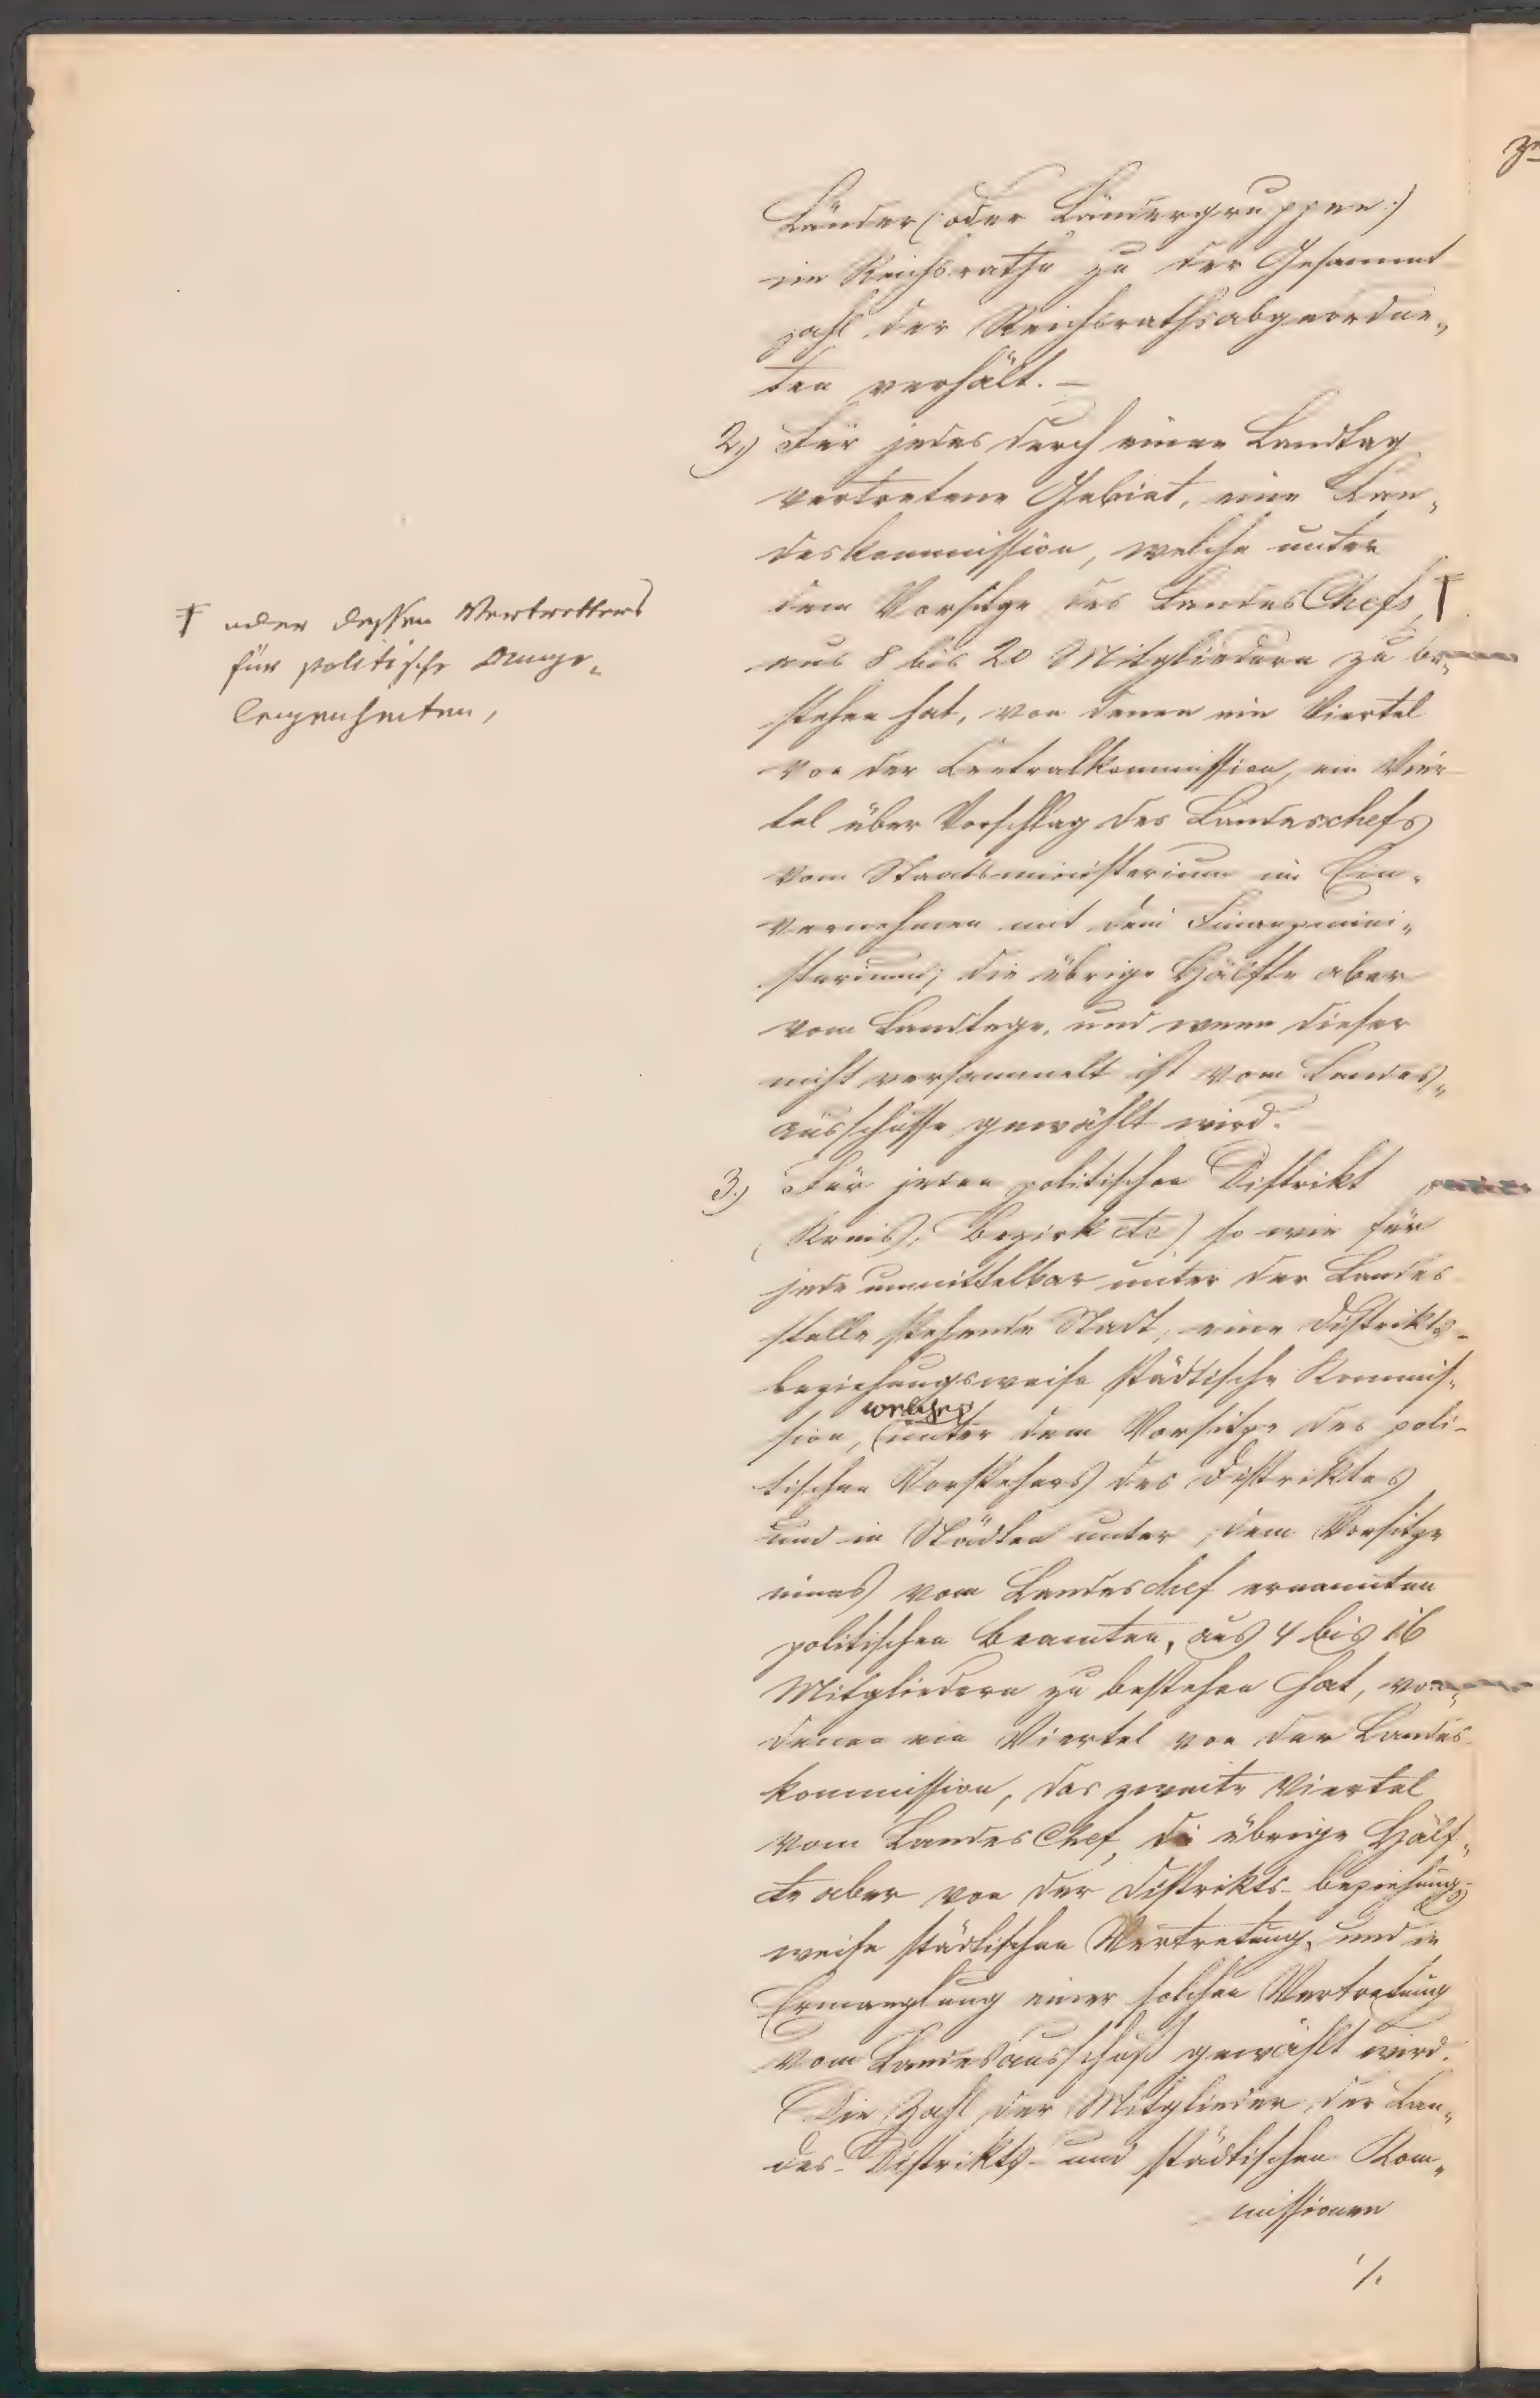 Länder (oder Ländergruppen)
im Reichsrathe zu der Gesammt
zahl der Reichsrathsabgeordne„
ten verhält. –
2.) Für jedes durch einen Landtag
vertretene Gebiet, eine Lan„
deskommission, welche unter
dem Vorsitze des Landes Chefs, †
† oder dessen Vertretters
für politische Ange„
legenheiten,
aus 8 bis 20 Mitgliedern zu be„
stehen hat, von denen ein Viertel
von der Centralkommission, ein Vier
tel über Vorschlag des Landeschefs
vom Staatsministerium im Ein„
vernehmen mit dem Finanzmini„
sterium; die übrige Hälfte aber
vom Landtage, und wenn dieser
nicht versammelt ist vom Landes„
ausschusse gewählt wird.
3.) Für jeden politischen Distrikt
(Kreis, Bezirk etc) so wie für
jede unmittelbar unter der Landes
stelle stehende Stadt, eine Distrikts-
beziehungsweise städtische Kommis„
welche
sion, unter dem Vorsitze des poli-
tischen Vorstehers des Distriktes
und in Städten unter dem Vorsitze
eines vom Landeschef ernannten
politischen Beamten, aus 4 bis 16
Mitgliedern zu bestehen hat, von
denen ein Viertel von der Landes
kommission, das zweite Viertel
vom Landes Chef, di übrige Hälf„
te aber von der Distrikts- beziehungs
weise städtischen Vertretung, und in
Ermanglung einer solchen Vertretung
vom Landesausschuß gewählt wird.
Die Zahl der Mitglieder der Lan„
des- Distrikts- und städtischen Kom„
missionen
./.